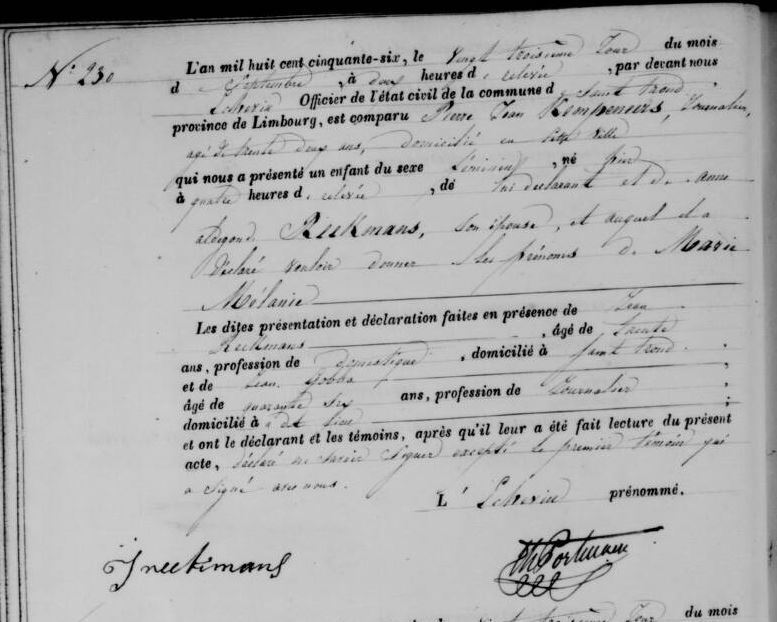 N° 230
L'an mil huit cent cinquante-six, le vingt troisième Jour du mois
d e Septembre , à deux heures d e relevée , par devant nous
Echevin Officier de l'état civil de la commune d e Saint trond
province de Limbourg, est comparu Pierre Jean Kempeneers, Journalier,
agé de trente deux ans, domicilié en cette ville
qui nous a présenté un enfant du sexe féminin , né hier
à quatre heures d e relevée , de lui déclarant et de Anne
aldegonde Reekmans, son épouse, et auquel il a
déclaré vouloir donner les prénoms de Marie
Mélanie
Les dites présentation et déclaration faites en présence de Jean
Reekmans , âgé de trente
ans, profession de domestique , domicilié à Saint trond ;
et de Jean Gobba ;
âgé de quarante six ans, profession de Journalier ;
domicilié à dit lieu ;
et ont le déclarant et les témoins, après qu'il leur a été fait lecture du présent
acte, déclaré ne savoir signer excepté le premier témoin qui
a signé avec nous.
L' Echevin prénommé.
J reekmans
du mois